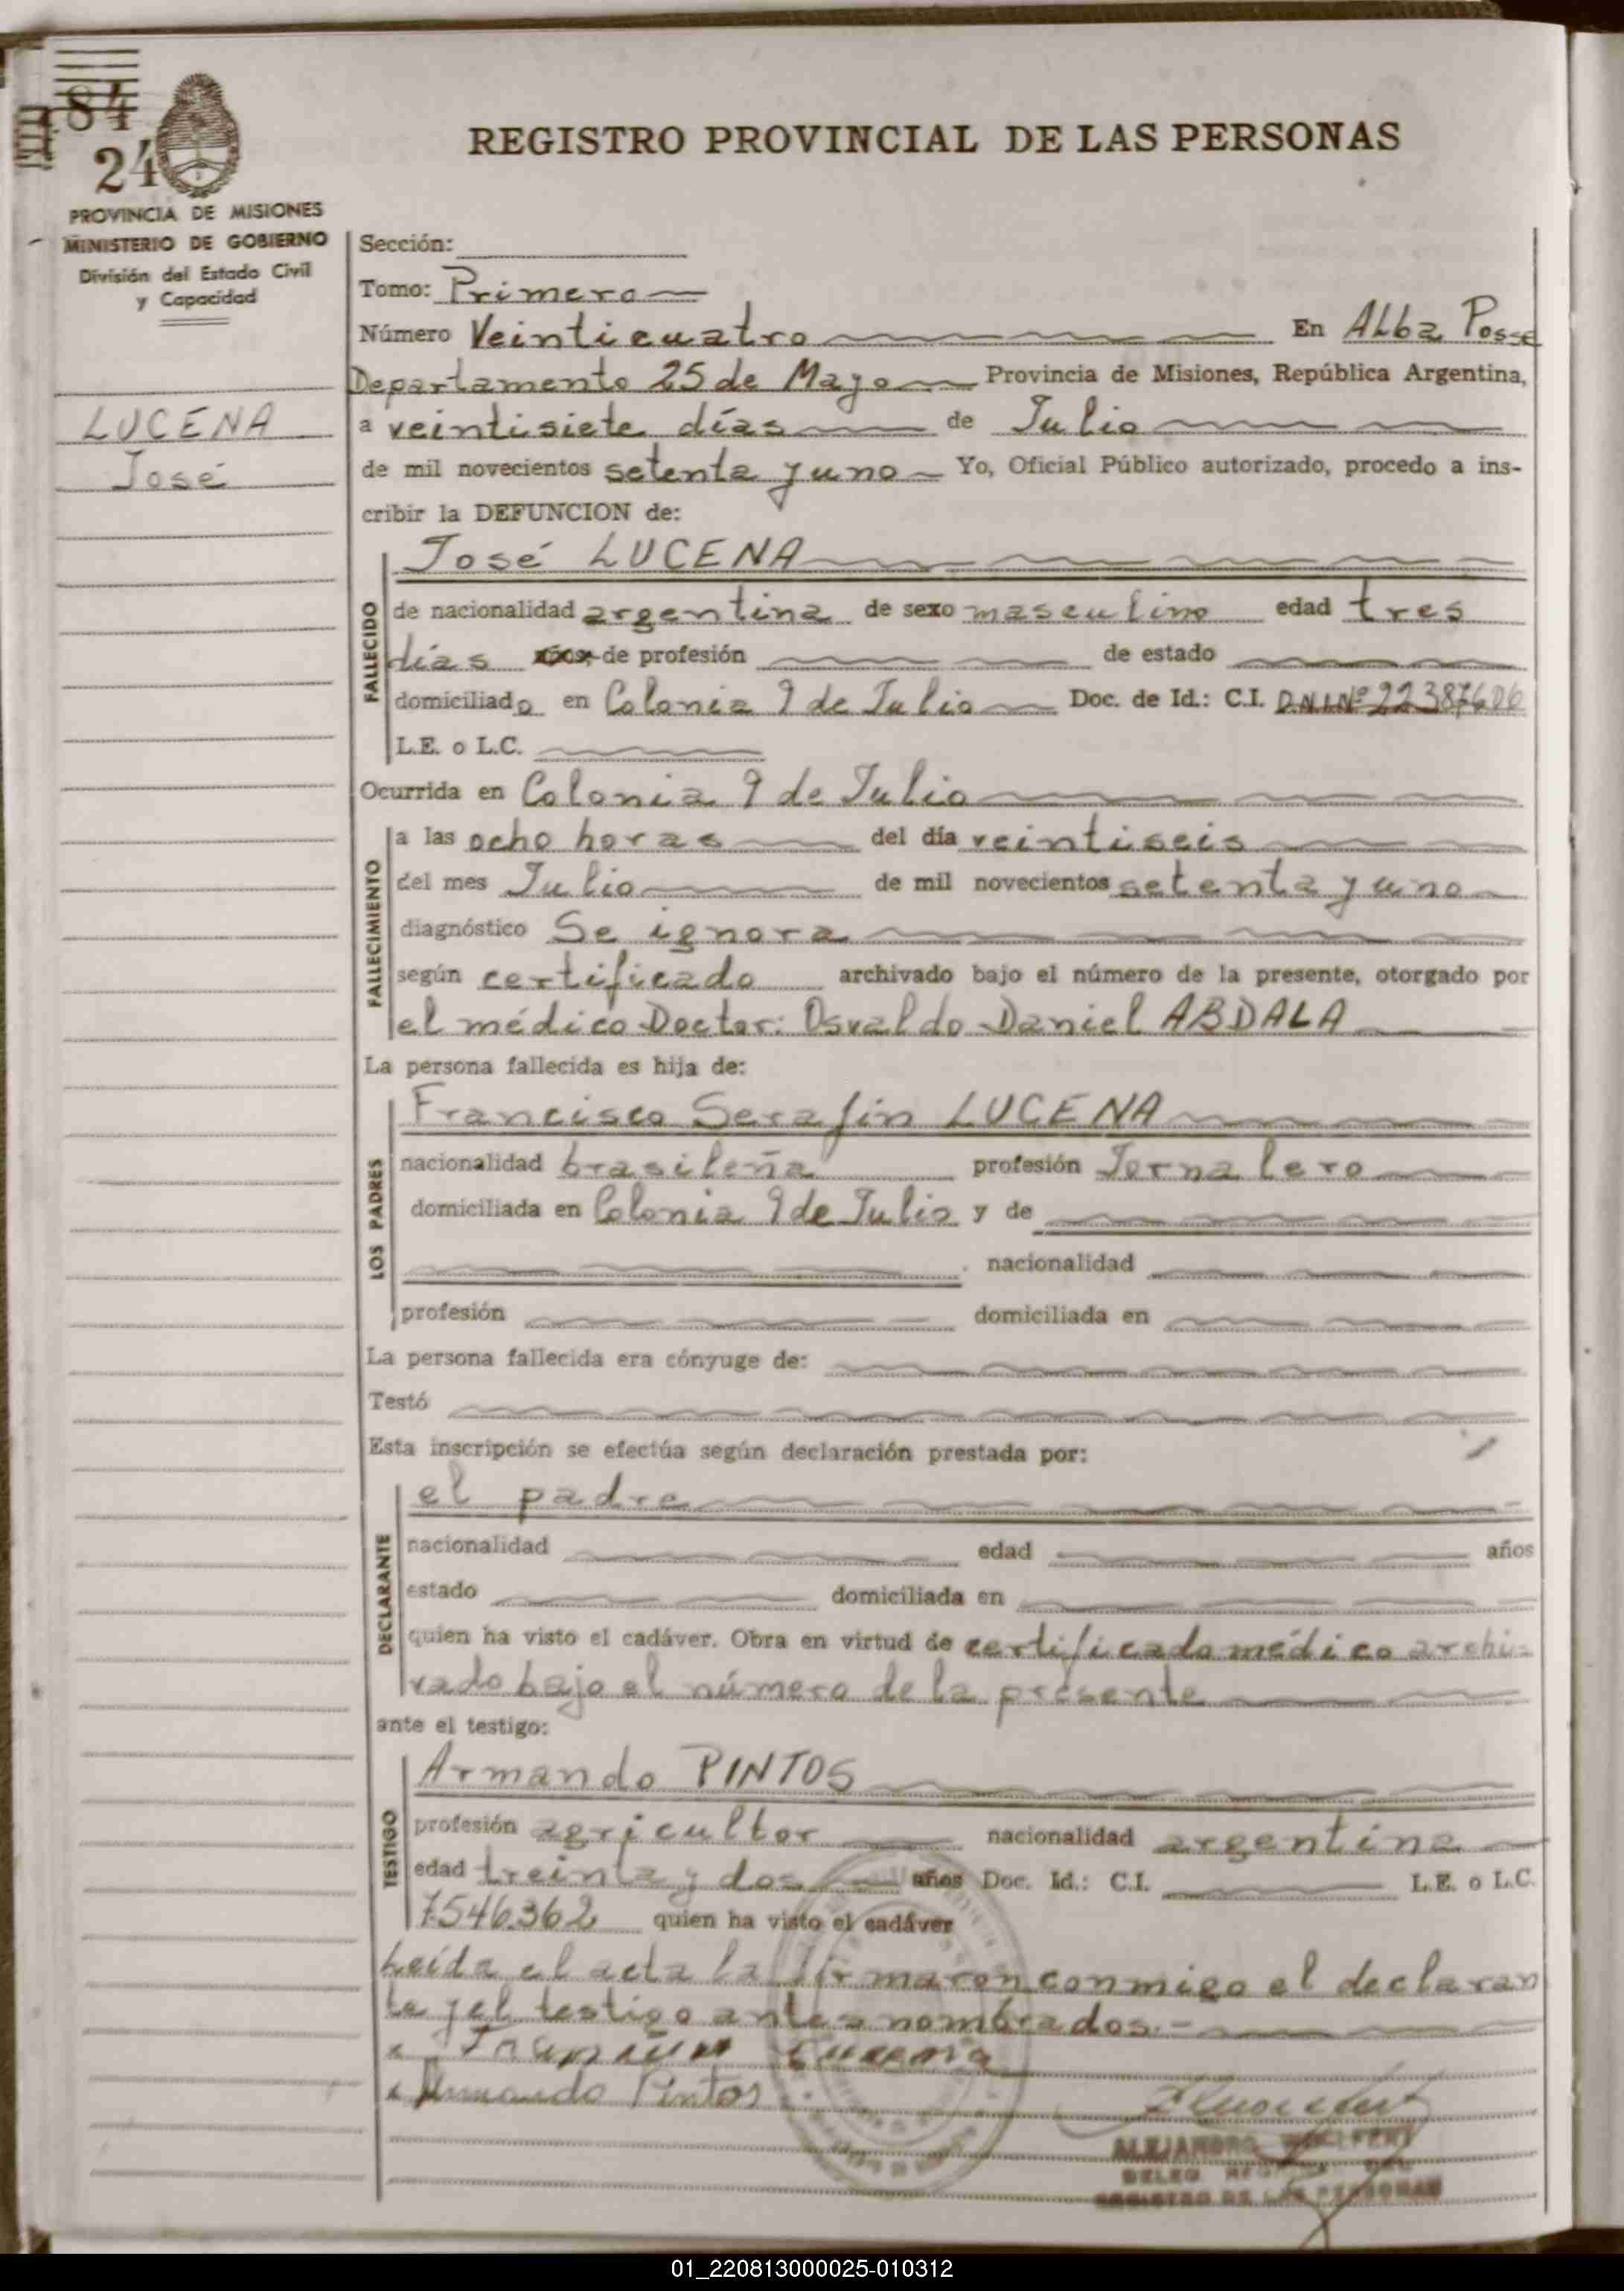 84
24
REGISTRO PROVINCIAL DE LAS PERSONAS
PROVINCIA DE MISIONES
MINISTERIO DE GOBIERNO
División del Estado Civil
y Capacidad
LUCENA
José
Sección:
Tomo: Primero
Número Veinticuatro En ALba Posse
Departamento 25 de Mayo Provincia de Misiones, República Argentina,
a veintisiete días de Julio
de mil novecientos setenta y uno Yo, Oficial Público autorizado, procedo a ins-
cribir la DEFUNCION de:
FALLECIDO
José LUCENA
de nacionalidad argentina de sexo masculino edad tres
días años de profesión de estado
domiciliado en Colonia 9 de Julio Doc. de Id.: C.I. D.N.I.Nº 22387606
L.E. o L.C.
Ocurrida en Colonia 9 de Julio
FALLECIMIENTO
a las ocho horas del día veintiseis
del mes Julio de mil novecientos setenta y uno
diagnóstico Se ignora
según certificado archivado bajo el número de la presente, otorgado por
el médico Doctor: Osvaldo Daniel ABDALA
La persona fallecida es hija de:
LOS PADRES
Francisco Serafin LUCENA
nacionalidad brasileña profesión Jornalero
domiciliada en Colonia 9 de Julio y de
nacionalidad
profesión domiciliada en
La persona fallecida era cónyuge de:
Testó
Esta inscripción se efectúa según declaración prestada por:
DECLARANTE
el padre
nacionalidad edad años
estado domiciliada en
quien ha visto el cadáver. Obra en virtud de certificado médico archi-
vado bajo el número de la presente
ante el testigo:
TESTIGO
Armando PINTOS
profesión agricultor nacionalidad argentina
edad treinta y dos años Doc. Id.: C.I. L.E. o L.C.
7546362 quien ha visto el cadáver
Leída el acta la firmaron conmigo el declaran
te y el testigo antes nombrados.-
Lucena
Armando Pintos
ALEJANDRO
DELEG.
REGISTRO DE LAS PERSONAS
01_220813000025-010312